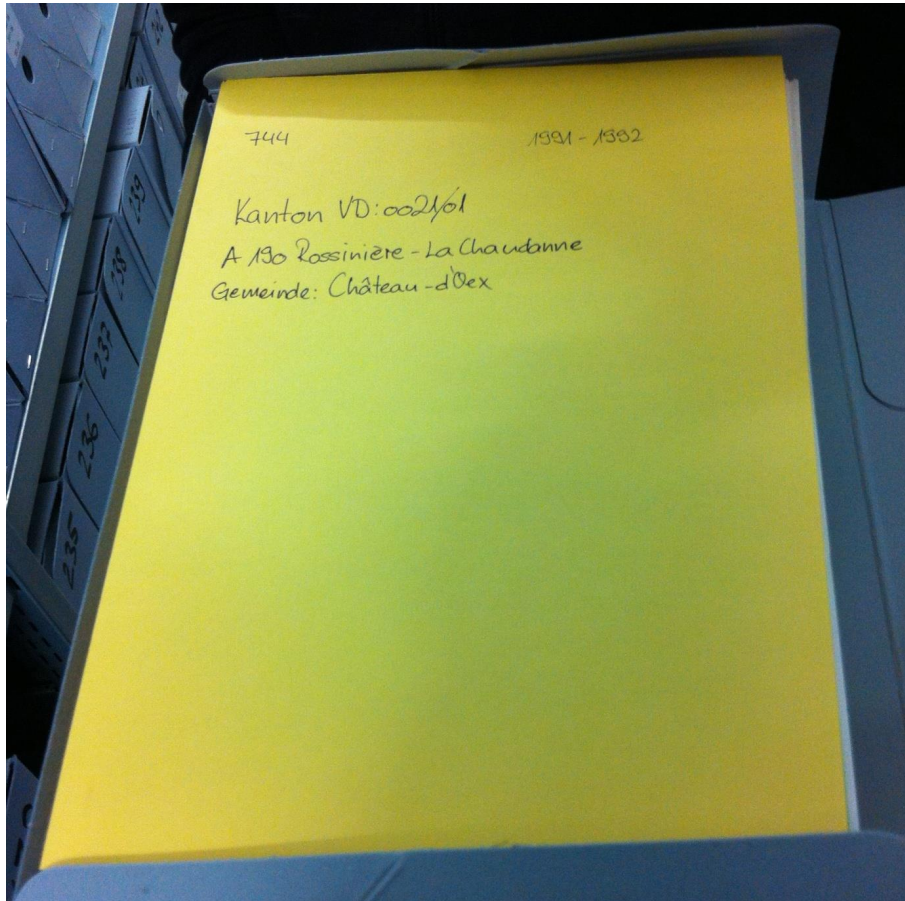 744 1991-1992
Kanton VD: 0021/01
A 190 Rossinière - La Chaudanne
Gemeinde: Château-d'Oex
239
238
237
236
235